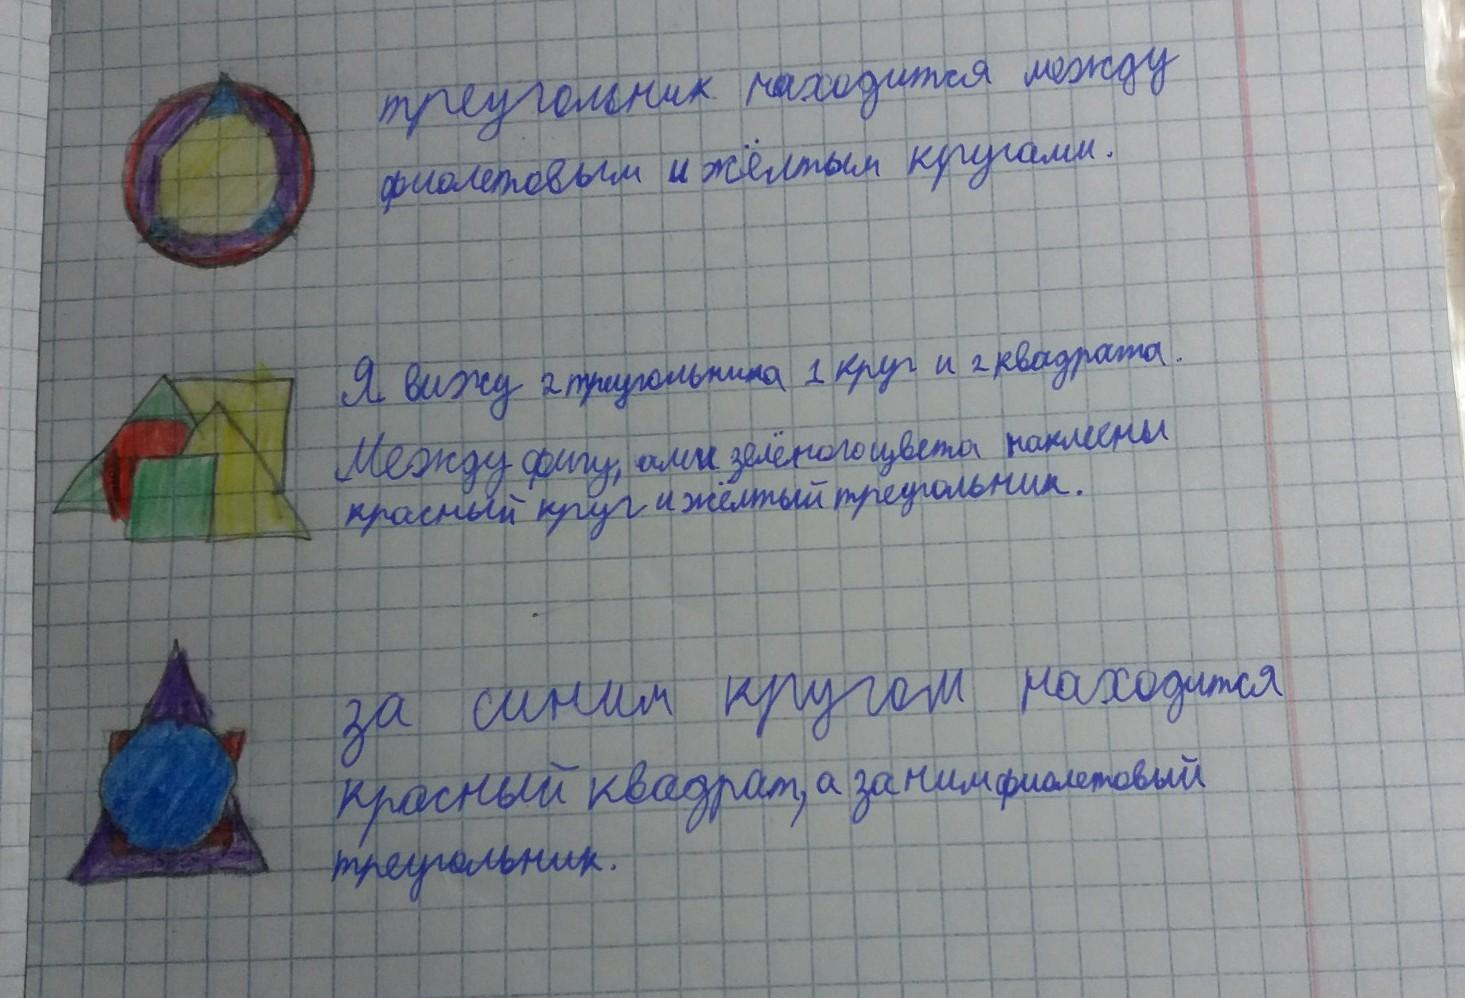 треугольник находится между
фиолетовым и жёлтым кругами.
Я вижу 2 треугольника 1 круг и 2 квадрата.
Между фигурами зелёного цвета наклеены
красный круг и жёлтый треугольник.
за синим кругом находится
красный квадрат, а за ним фиолетовый
треугольник.